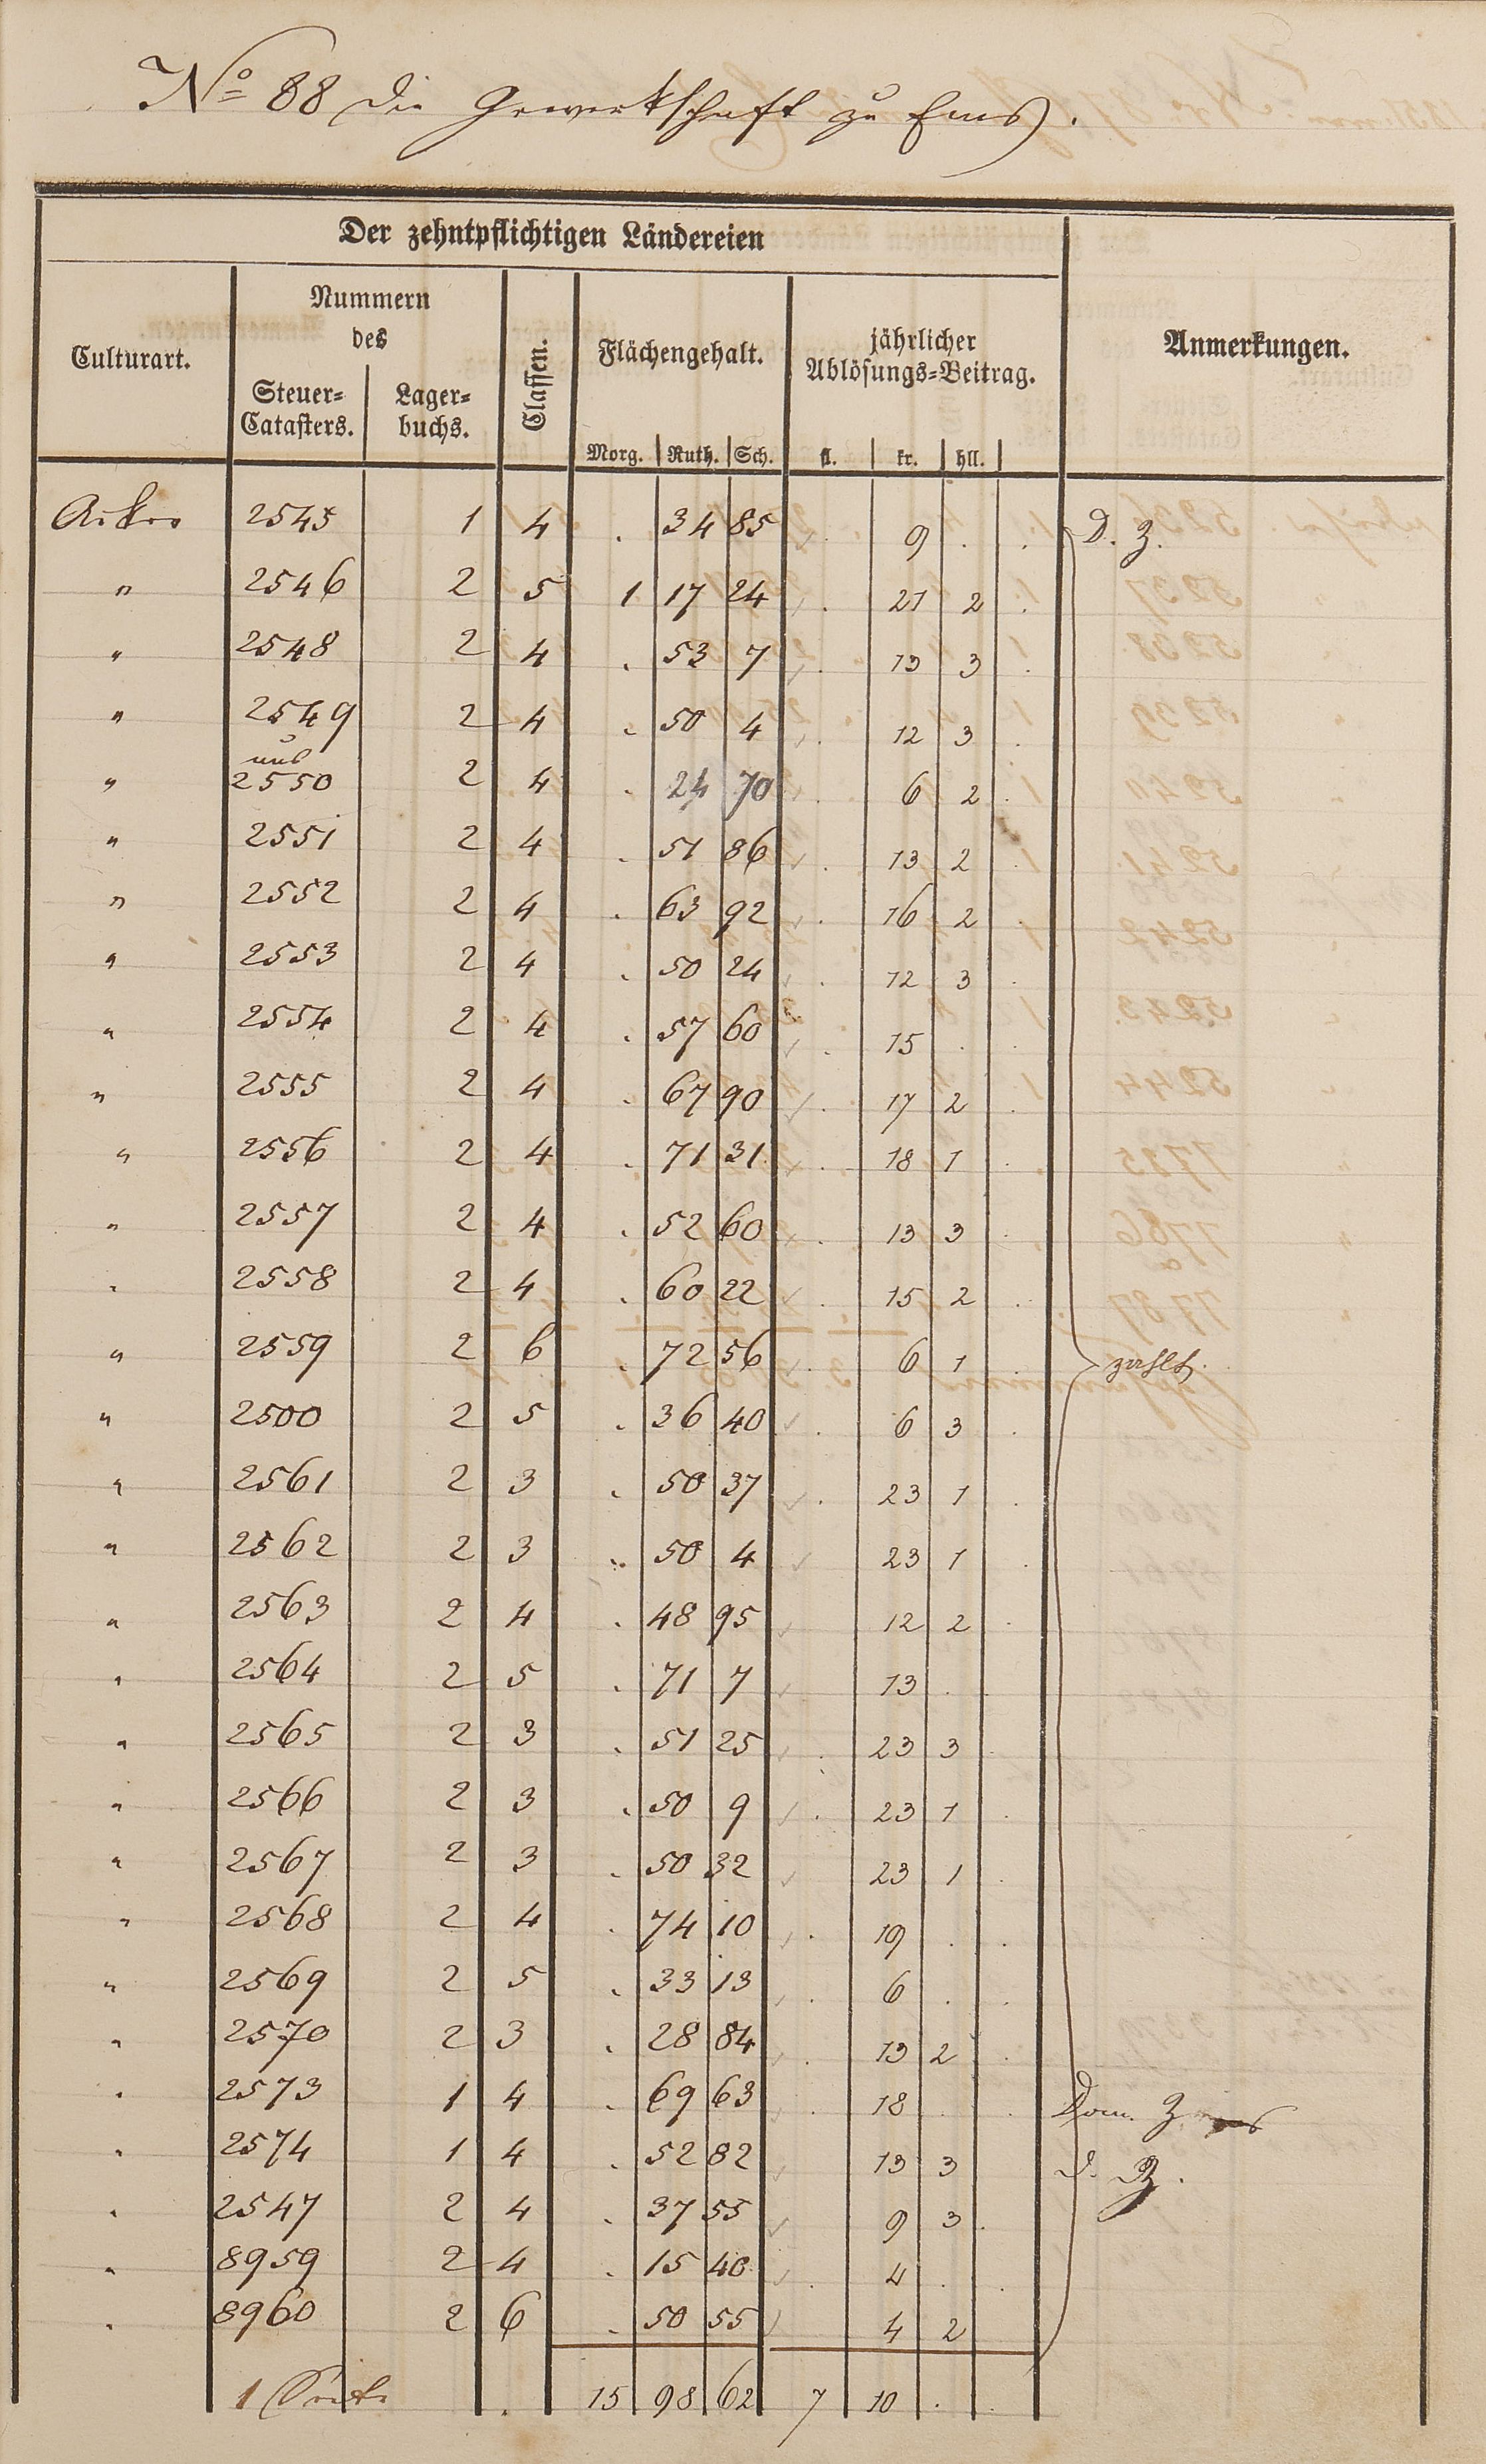 No 88 die Gewerkschaft zu Ems.
Der zehntpflichtigen Ländereien
Culturart. Nummern des Steuer-Catasters. Lager-buchs. Classen. Flächengehalt. Morg. Ruth. Sch. jährlicher Ablösungs-Beitrag. fl. kr. hll. Anmerkungen.
Acker 2545 1 4 . 34 85 . 9 . . D. Z.
" 2546 2 5 1 17 24 . 21 2 .
" 2548 2 4 . 53 7 . 13 3 .
" 2549 2 4 . 50 4 . 12 3 .
und
" 2550 2 4 . 24 70 . 6 2 .
" 2551 2 4 . 51 86 . 13 2 .
" 2552 2 4 . 63 92 . 16 2 .
" 2553 2 4 . 50 24 . 12 3 .
" 2554 2 4 . 57 60 . 15 . .
" 2555 2 4 . 67 90 . 17 2 .
" 2556 2 4 . 71 31 . 18 1 .
" 2557 2 4 . 52 60 . 13 3 .
" 2558 2 4 . 60 22 . 15 2 .
" 2559 2 6 . 72 56 . 6 1 . zahlt.
" 2500 2 5 . 36 40 . 6 3 .
" 2561 2 3 . 50 37 . 23 1 .
" 2562 2 3 . 50 4 23 1 .
" 2563 2 4 . 48 95 12 2 .
" 2564 2 5 . 71 7 13 . .
" 2565 2 3 . 51 25 . 23 3 .
" 2566 2 3 . 50 9 . 23 1 .
" 2567 2 3 . 50 32 23 1 .
" 2568 2 4 . 74 10 . 19 . .
" 2569 2 5 . 33 13 . 6 . .
" 2570 2 3 . 28 84 . 13 2 .
" 2573 1 4 . 69 63 . 18 . . Dom. Z
" 2574 1 4 . 52 82 13 3 D. Z.
" 2547 2 4 . 37 55 9 3 .
" 8959 2 4 . 15 40 . 4 . .
" 8960 2 6 . 50 55 4 2
1 . 15 98 62 7 10 . .